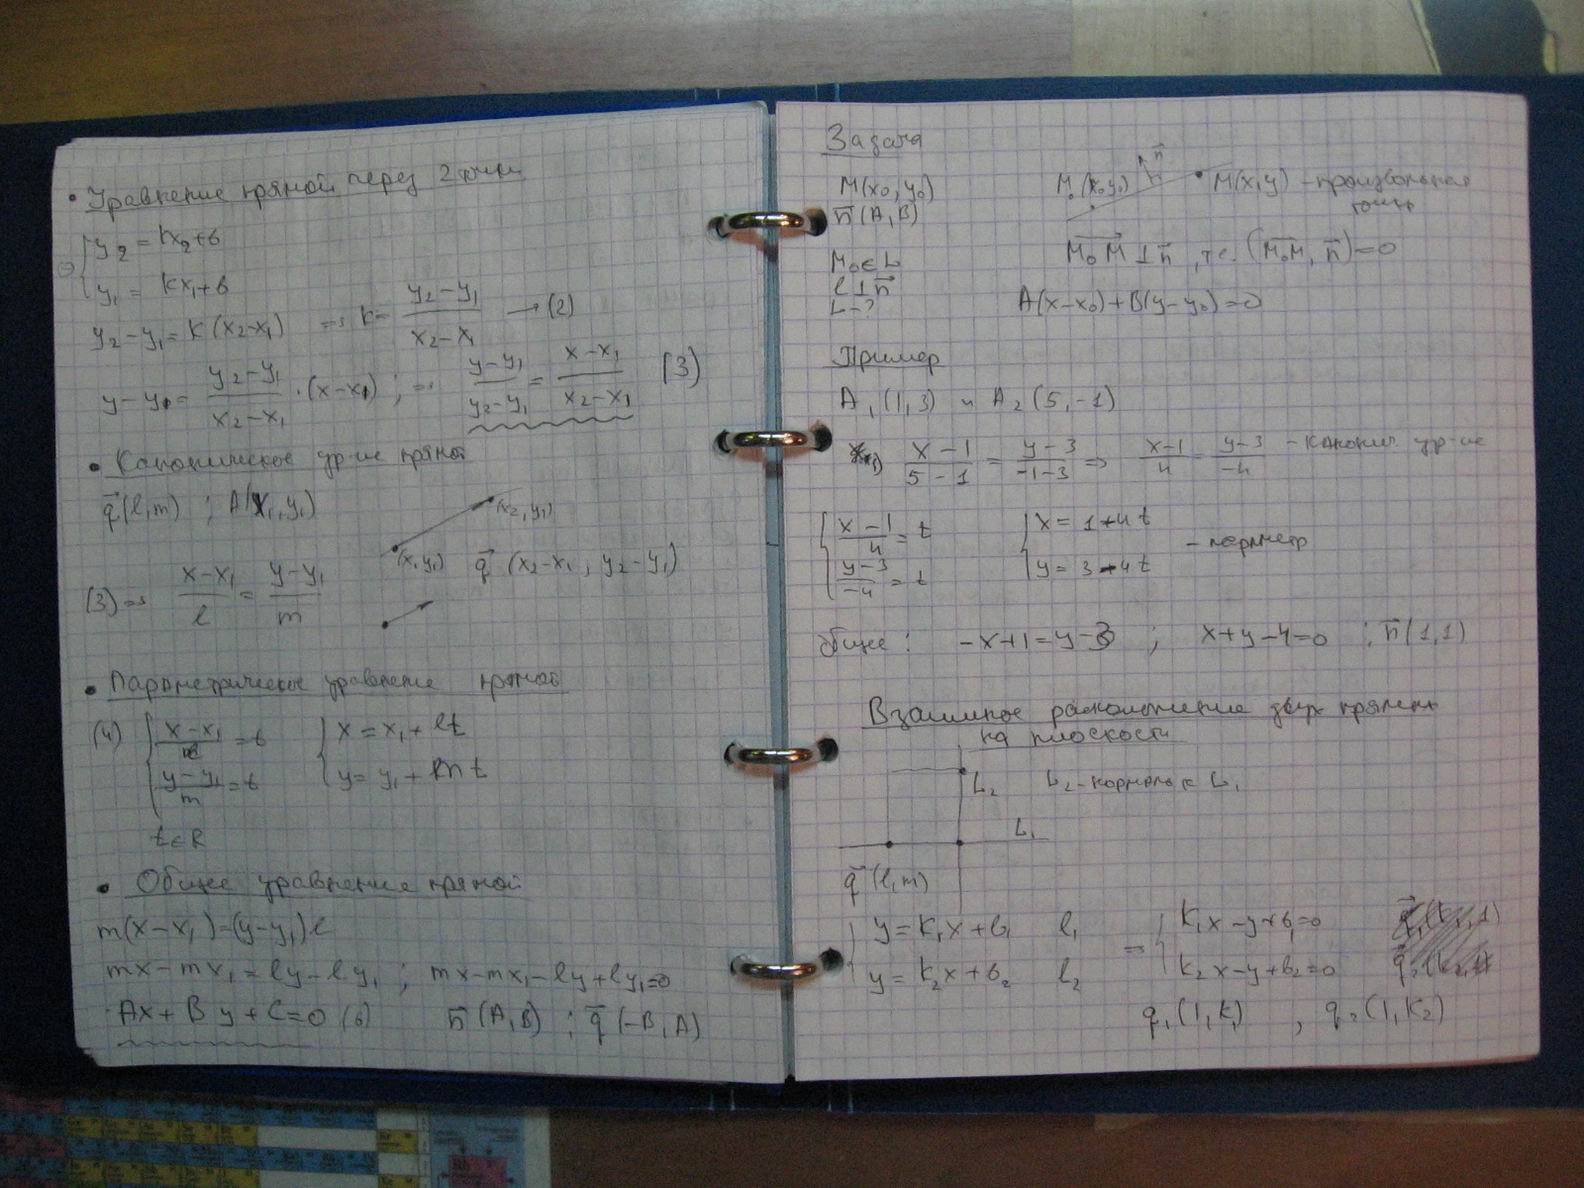 • Уравнение прямой через 2 точки
y₂ = kx₂+b
y₁ = kx₁+b
y₂-y₁ = k(x₂-x₁) => k = (y₂-y₁)/(x₂-x₁) → (2)
y-y₁ = (y₂-y₁)/(x₂-x₁) · (x-x₁) ; => (y-y₁)/(y₂-y₁) = (x-x₁)/(x₂-x₁) (3)
• Каноническое ур-ие прямой
q⃗(l,m) ; A(x₁,y₁)
(x₂,y₁)
(x,y₁) q⃗ (x₂-x₁, y₂-y₁)
(3) => (x-x₁)/l = (y-y₁)/m
• Параметрическое уравнение прямой
(4) { (x-x₁)/l = t { x = x₁+lt
(y-y₁)/m = t y = y₁+mt
t∈R
• Общее уравнение прямой
m(x-x₁)=(y-y₁)l
mx-mx₁=ly-ly₁ ; mx-mx₁-ly+ly₁=0
Ax+By+C=0 (6) n⃗(A,B) ; q⃗(-B,A)
Задача
M(x₀,y₀)
n⃗(A,B)
M₀∈L
l⊥n⃗
L-?
n⃗
M(x,y) - произвольная точка
M₀M⊥n⃗, т.е. (M₀M, n⃗)=0
A(x-x₀)+B(y-y₀)=0
Пример
A₁(1,3) и A₂(5,-1)
1) (x-1)/(5-1) = (y-3)/(-1-3) => (x-1)/4 = (y-3)/-4 - канонич. ур-ие
{ (x-1)/4 = t { x = 1+4t
(y-3)/-4 = t y = 3-4t - параметр
Общее: -x+1=y-3 ; x+y-4=0 ; n⃗(1,1)
Взаимное расположение двух прямых
на плоскости
L₂ L₂-нормаль к L₁
L₁
q⃗(l,m)
{ y=k₁x+b₁ l₁ => { k₁x-y+b₁=0
y=k₂x+b₂ l₂ k₂x-y+b₂=0
q₁(1,k₁) , q₂(1,k₂)